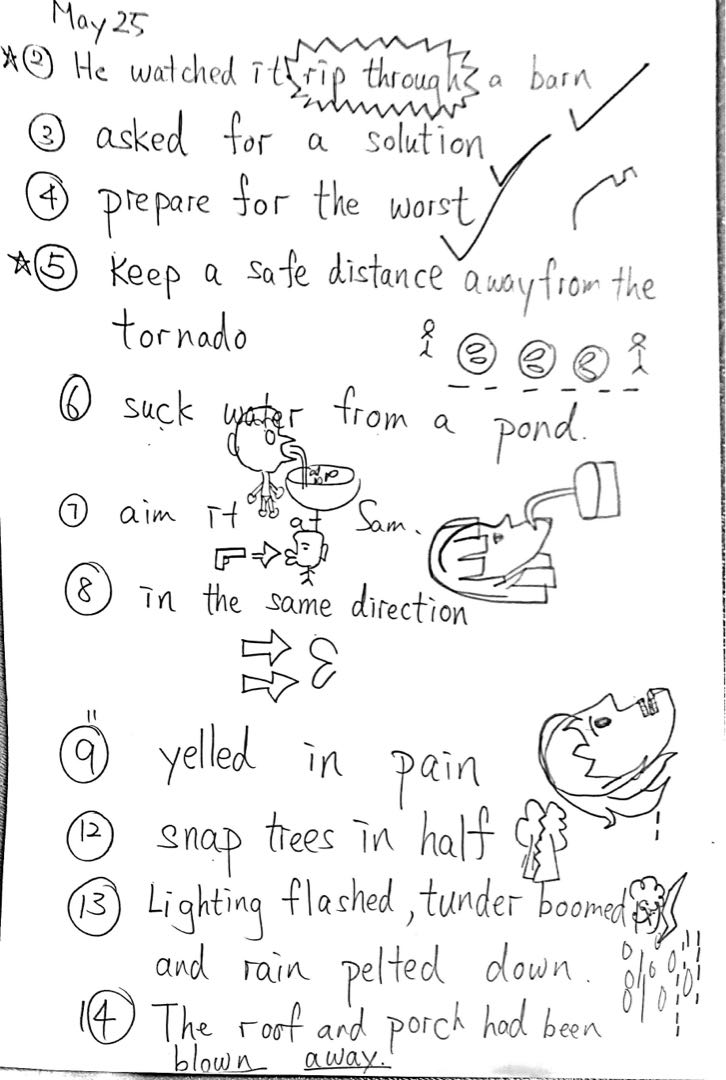 May 25
☆② He watched it rip through a barn
③ asked for a solution
④ prepare for the worst
☆⑤ Keep a safe distance away from the
tornado
⑥ suck water from a pond.
⑦ aim it at Sam.
⑧ in the same direction
⑨ yelled in pain
⑫ snap trees in half
⑬ Lighting flashed, tunder boomed
and rain pelted down.
⑭ The roof and porch had been
blown away.